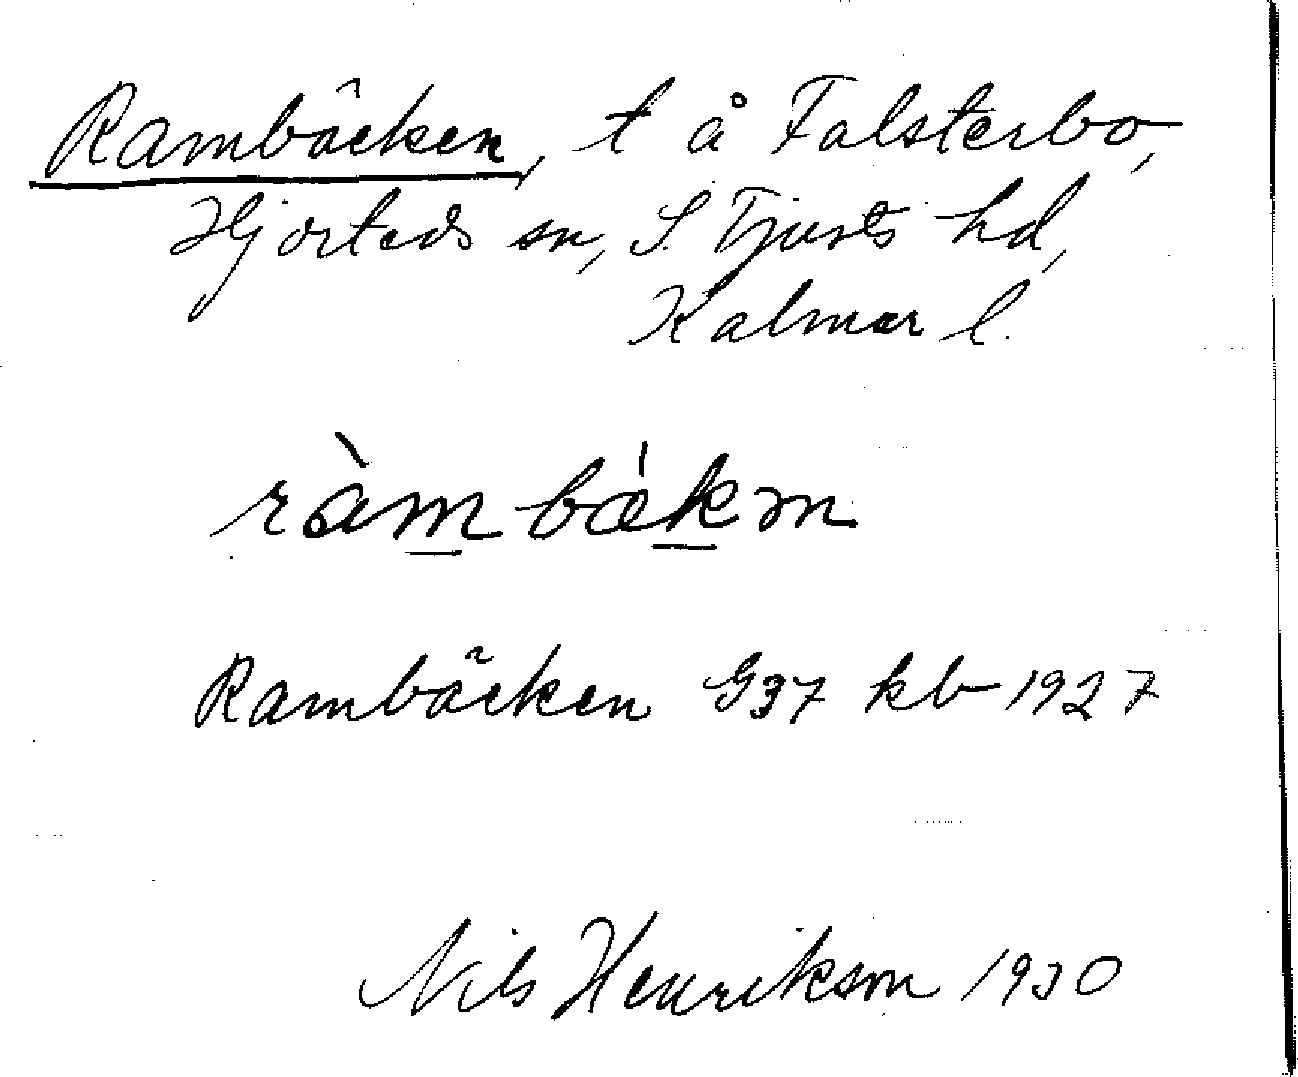 Rambäcken, t å Falsterbo,
Hjorteds sn, S. Tjusts hd,
Kalmar l.
ràmbǽkən
Rambäcken G37 kb 1927
Nils Henrikson 1930